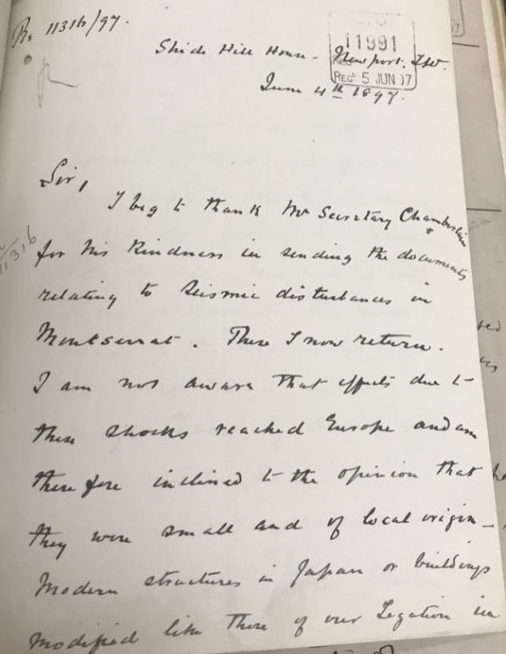 Rs 11316/97.
11991
REGD 5 JUN 97
Shide Hill House. Newport. I.W.
June 4th 1897.
Sir,
I beg to thank Mr Secretary Chamberlain
for his kindness in sending the documents
relating to Seismic disturbances in
Montserrat. These I now return.
I am not aware that effects due to
these shocks reached Europe and am
therefore inclined to the opinion that
they were small and of local origin –
Modern structures in Japan or buildings
modified like those of our Legation in
11316